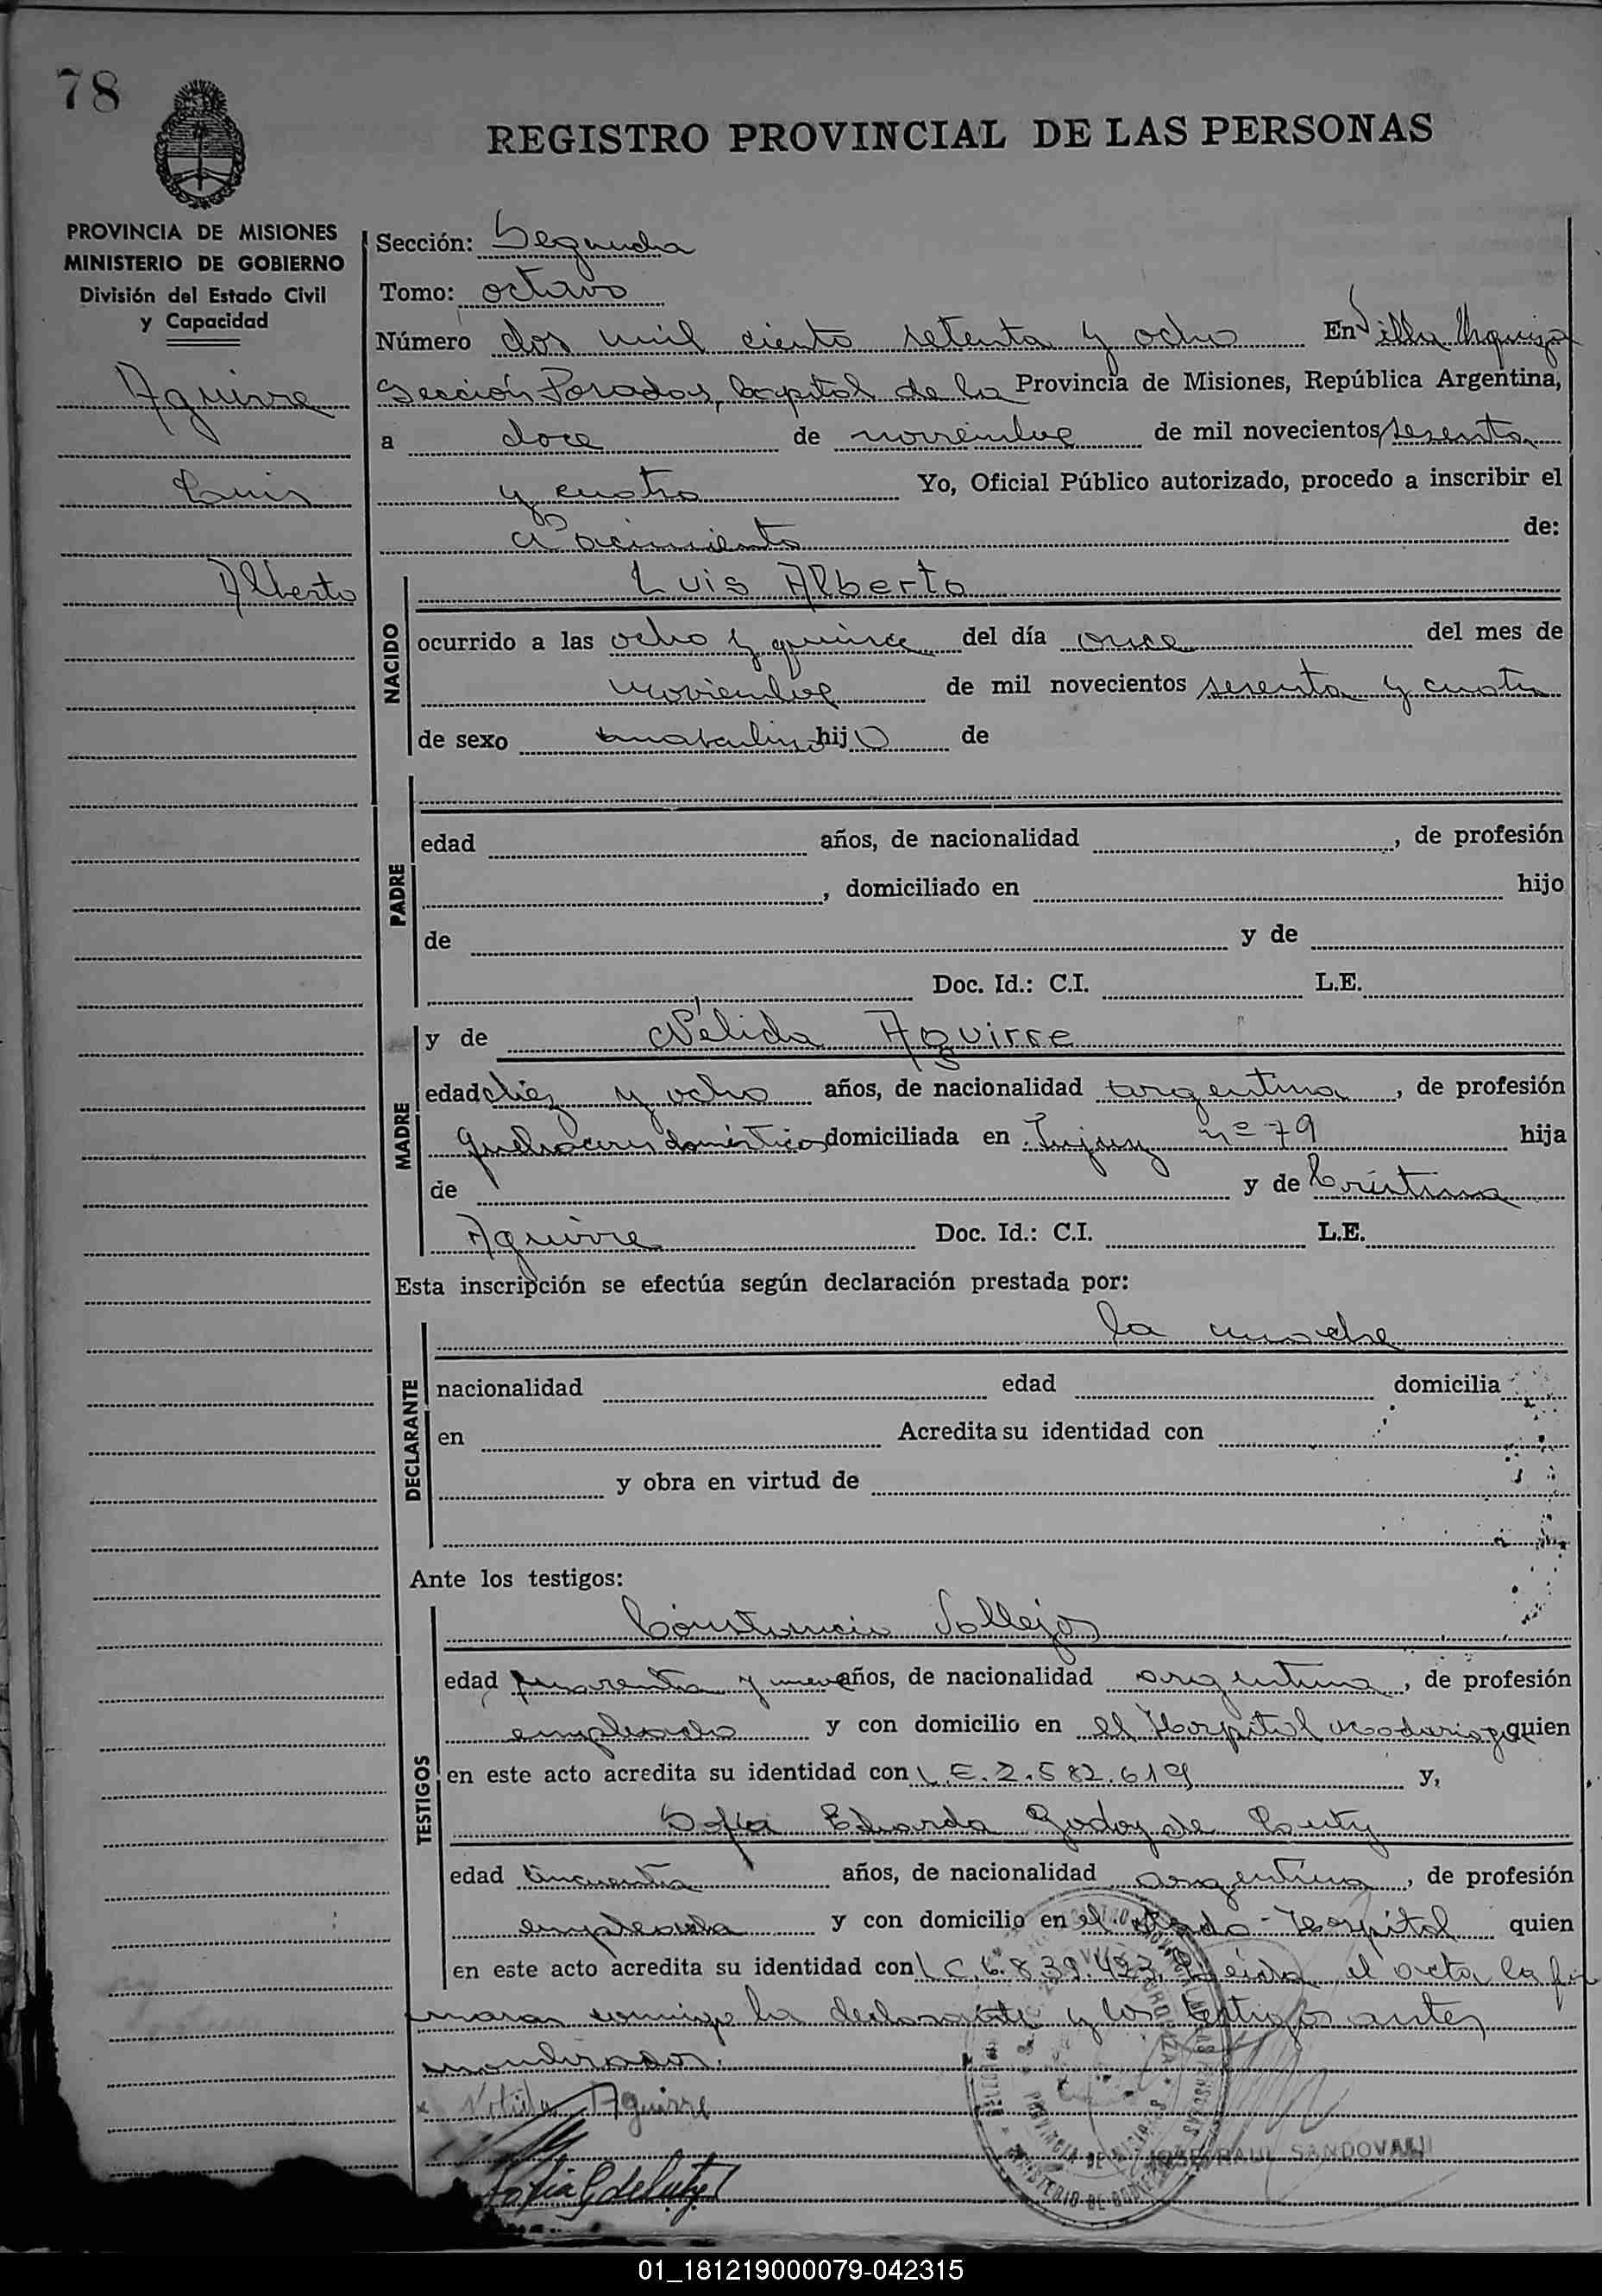 78
REGISTRO PROVINCIAL DE LAS PERSONAS
PROVINCIA DE MISIONES
MINISTERIO DE GOBIERNO
División del Estado Civil
y Capacidad
Aguirre
Luis
Alberto
Sección: Segunda
Tomo: octavo
Número dos mil ciento setenta y ocho En Villa Urquiza
Sección Posadas, Capital de la Provincia de Misiones, República Argentina,
a doce de noviembre de mil novecientos sesenta
y cuatro Yo, Oficial Público autorizado, procedo a inscribir el
Nacimiento de:
NACIDO
Luis Alberto
ocurrido a las ocho y quince del día once del mes de
noviembre de mil novecientos sesenta y cuatro
de sexo masculino hijo de
PADRE
edad años, de nacionalidad , de profesión
, domiciliado en hijo
de y de
Doc. Id.: C.I. L.E.
MADRE
y de Nélida Aguirre
edad diez y ocho años, de nacionalidad argentina, de profesión
quehaceres domésticos domiciliada en Jujuy nº 79 hija
de y de Cristina
Aguirre Doc. Id.: C.I. L.E.
Esta inscripción se efectúa según declaración prestada por:
DECLARANTE
la madre
nacionalidad edad domicilia
en Acredita su identidad con
y obra en virtud de
Ante los testigos:
TESTIGOS
Constancio Vallejos
edad cuarenta y nueve años, de nacionalidad argentina, de profesión
empleado y con domicilio en el Hospital Madariaga quien
en este acto acredita su identidad con L.E. 2.582.619 y,
Sofia Eduarda Godoy de
edad cincuenta años, de nacionalidad argentina, de profesión
empleada y con domicilio en el Hospital quien
en este acto acredita su identidad con L.C. 6.839.423. Leída el acta la fir
maron conmigo la declarante y los testigos antes
mencionados.
Nelida Aguirre
JOSE RAUL SANDOVAL
Sofia G de
PROVINCIA DE MISIONES
MINISTERIO DE GOBIERNO
01_181219000079-042315